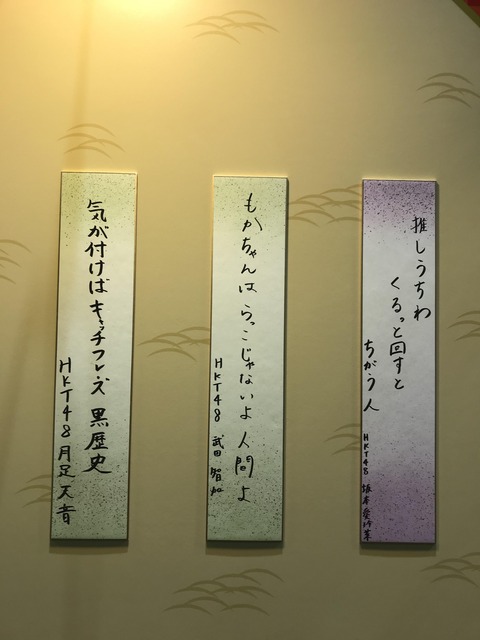 推しうちわ
くるっと回すと
ちがう人
HKT48 坂本愛玲菜
もかちゃんは らっこじゃないよ 人間よ
HKT48 武田 智加
気が付けば キャッチフレーズ 黒歴史
HKT48 月足 天音